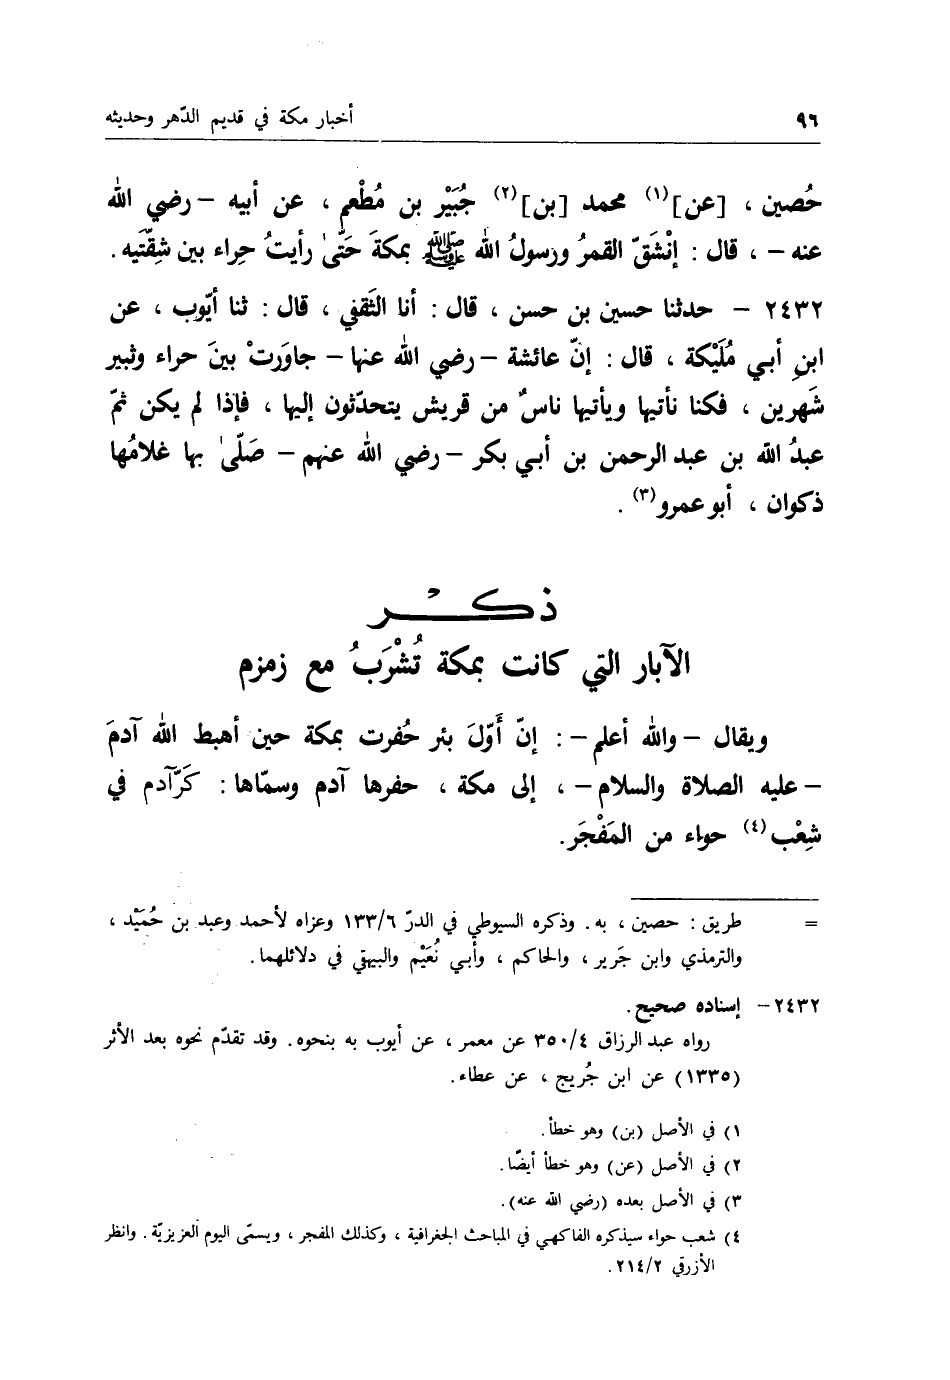 ٩٦ أخبار مكة في قديم الدّهر وحديثه
حُصين ، [عن](١) محمد [بن](٢) جُبَيْر بن مُطْعم ، عن أبيه – رضي الله
عنه – ، قال : إنْشَقّ القمرُ ورسولُ الله ﷺ بمكةَ حَتّىٰ رأيتُ حِراء بين شقّتَيه .
٢٤٣٢ – حدثنا حسين بن حسن ، قال : أنا الثَقفي ، قال : ثنا أيّوب ، عن
ابنِ أبي مُلَيْكة ، قال : إنّ عائشة – رضي الله عنها – جاوَرتْ بينَ حراء وثبير
شَهرين ، فكنا نأتيها ويأتيها ناسٌ من قريش يتحدّثون إليها ، فإذا لم يكن ثمّ
عبدُ الله بن عبد الرحمن بن أبي بكر – رضي الله عنهم – صَلّىٰ بها غلامُها
ذكوان ، أبو عمرو(٣) .
ذكْر
الآبار التي كانت بمكة تُشْرَبُ مع زمزم
ويقال – والله أعلم – : إنّ أَوّلَ بئر حُفرت بمكة حين أهبط الله آدمَ
– عليه الصلاة والسلام – ، إلى مكة ، حفرها آدم وسمّاها : كَرَّآدم في
شِعْب(٤) حواء من المَفْجَر .
= طريق : حصين ، به . وذكره السيوطي في الدرّ ١٣٣/٦ وعزاه لأحمد وعبد بن حُمَيْد ،
والترمذي وابن جَرير ، والحاكم ، وأبي نُعَيْم والبيهقي في دلائلهما .
٢٤٣٢ – إسناده صحيح .
رواه عبد الرزاق ٣٥٠/٤ عن معمر ، عن أيوب به بنحوه . وقد تقدّم نحوه بعد الأثر
(١٣٣٥) عن ابن جُريج ، عن عطاء .
١) في الأصل (بن) وهو خطأ .
٢) في الأصل (عن) وهو خطأ أيضًا .
٣) في الأصل بعده (رضي الله عنه) .
٤) شعب حواء سيذكره الفاكهي في المباحث الجغرافية ، وكذلك المفجر ، ويسمّى اليوم العزيزيّة . وانظر
الأزرقي ٢١٤/٢ .